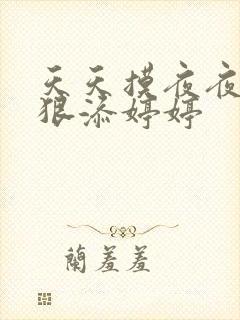 天天摸夜夜
狠添婷婷
蘭羞羞